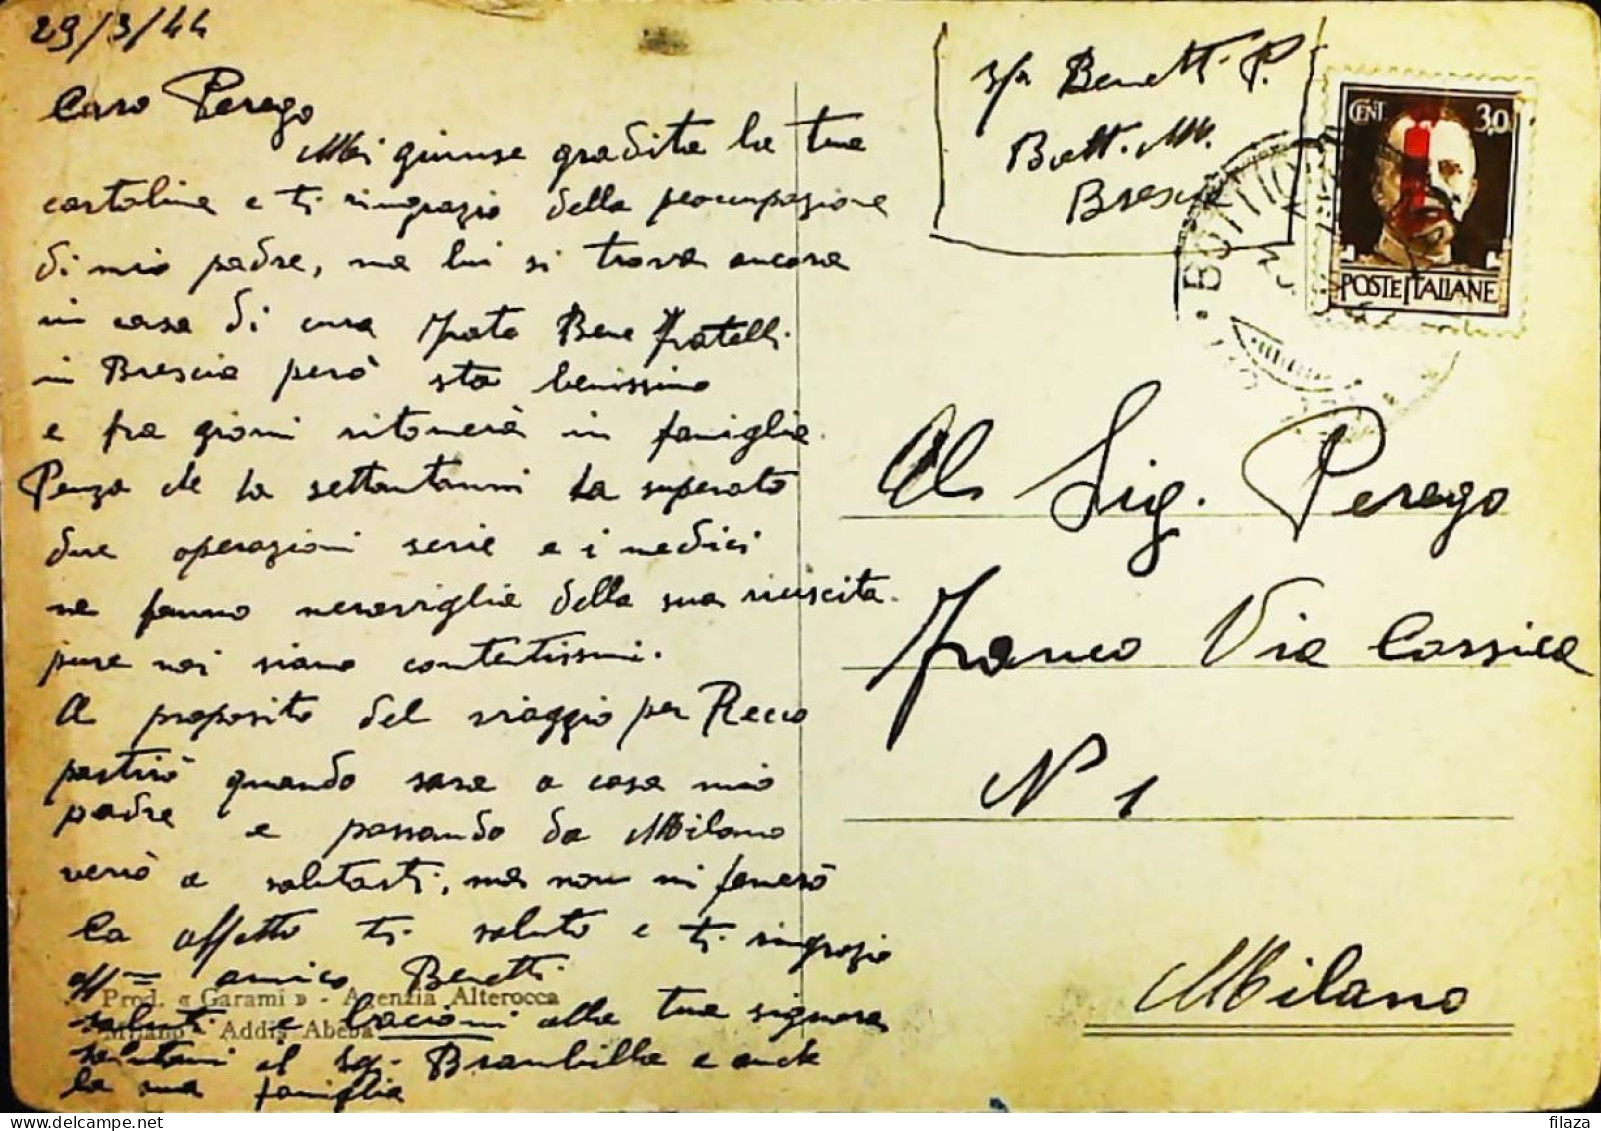 29/3/44
Caro Perego
Mi giunse gradita la tua
cartolina e ti ringrazio della peocupazione
di mio padre, ma lui si trova ancora
in casa di cura Fate Bene fratelli
in Brescia però sta benissimo
e fra giorni ritornerà in famiglia.
Penza che ha settantanni ha superato
due operazioni serie e i medici
ne fanno meraviglia della sua riuscita.
pure noi siamo contentissimi.
A proposito del viaggio per Recco
partirò quando sara a casa mio
padre e passando da Milano
verrò a salutarti, ma non mi fermerò
Co affetto ti saluto e ti ringrazio
aff= amico Benetti
Prod. « Garami » - Agenzia Alterocca
Milano - Addis Abeba
saluti e bacioni alla tua signora
salutami il sg. Brambilla e anche
la sua famiglia
Benetti P.
Bott. M.
Brescia
CENT 30
POSTE ITALIANE
BOTTICINO
Al Sig. Perego
Franco Via Corsica
N 1
Milano
filaza